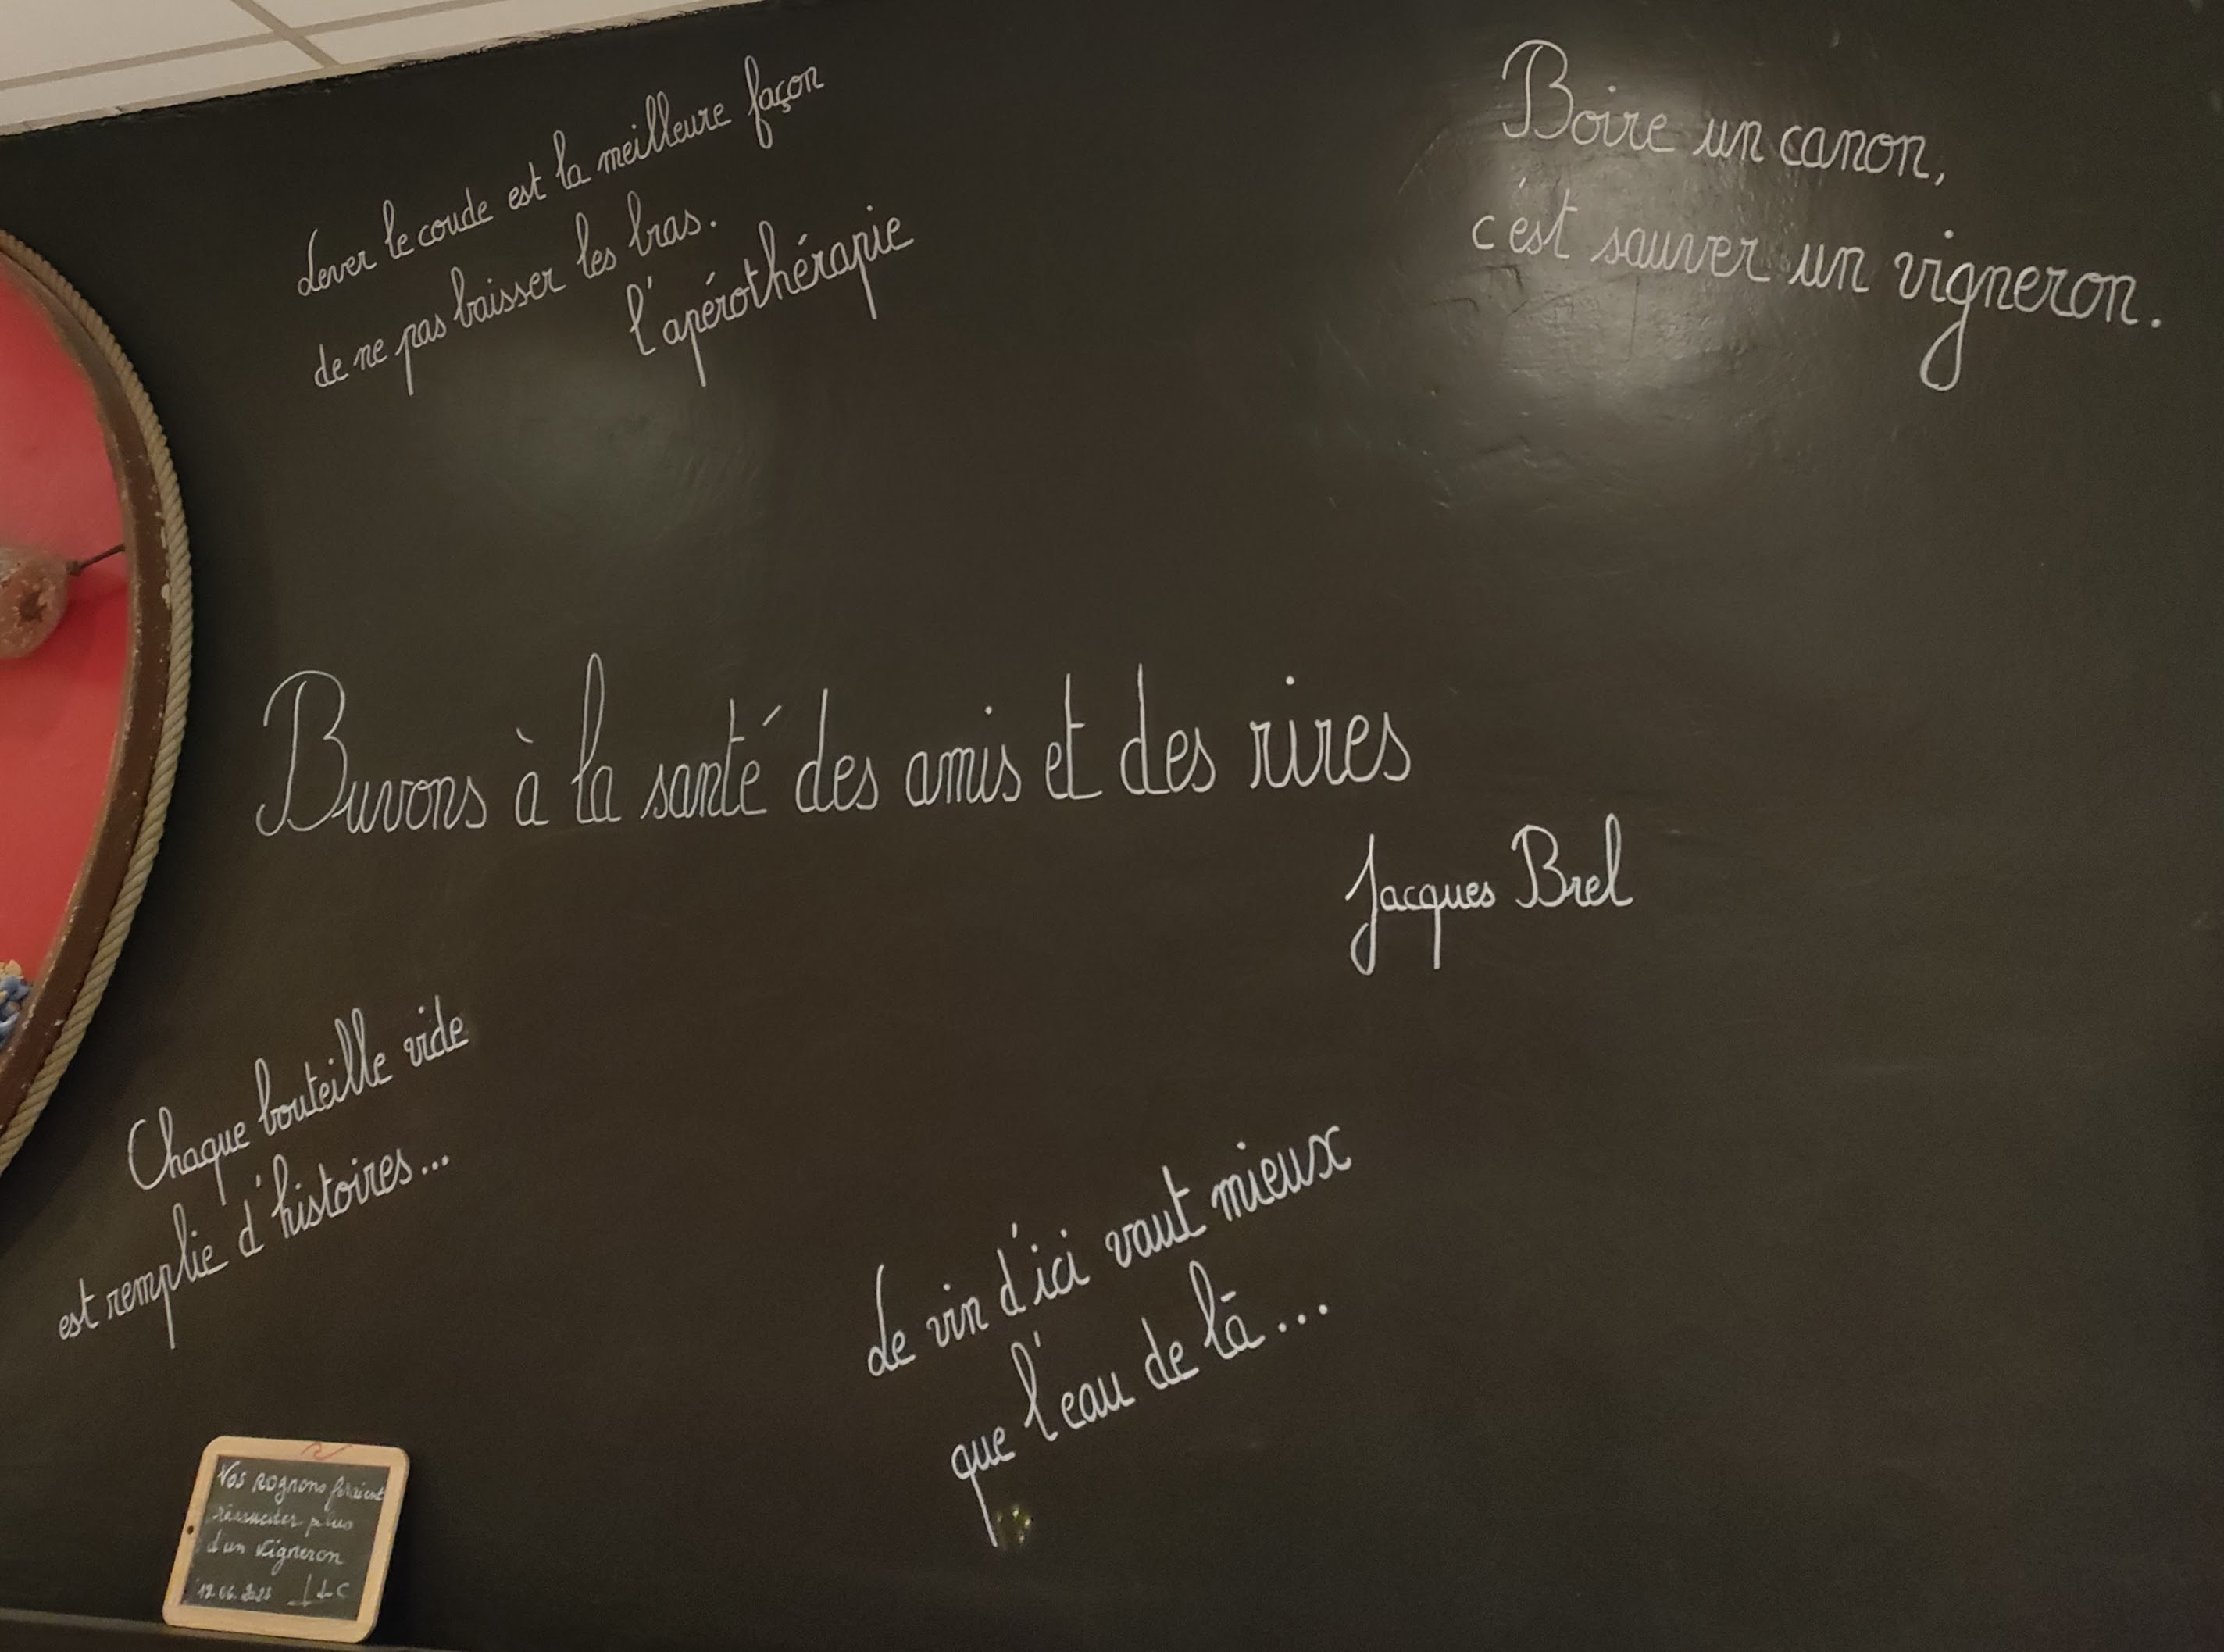 Lever le coude est la meilleure façon
de ne pas baisser les bras.
l'apérothérapie
Boire un canon,
c'est sauver un vigneron.
Buvons à la santé des amis et des rires
Jacques Brel
Chaque bouteille vide
est remplie d'histoires...
Le vin d'ici vaut mieux
que l'eau de là...
Vos Rognons feraient
réssusciter plus
d'un vigneron